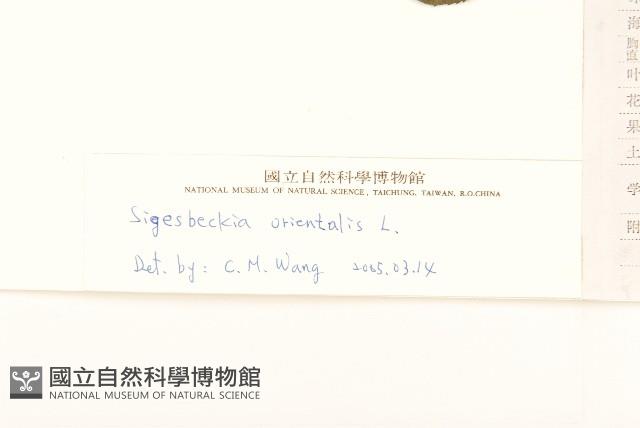 國立自然科學博物館
NATIONAL MUSEUM OF NATURAL SCIENCE, TAICHUNG, TAIWAN, R.O.CHINA
Sigesbeckia orientalis L.
Det. by: C. M. Wang 2005.03.14
海
胸
直
叶
花
果
土
学
附
國立自然科學博物館
NATIONAL MUSEUM OF NATURAL SCIENCE